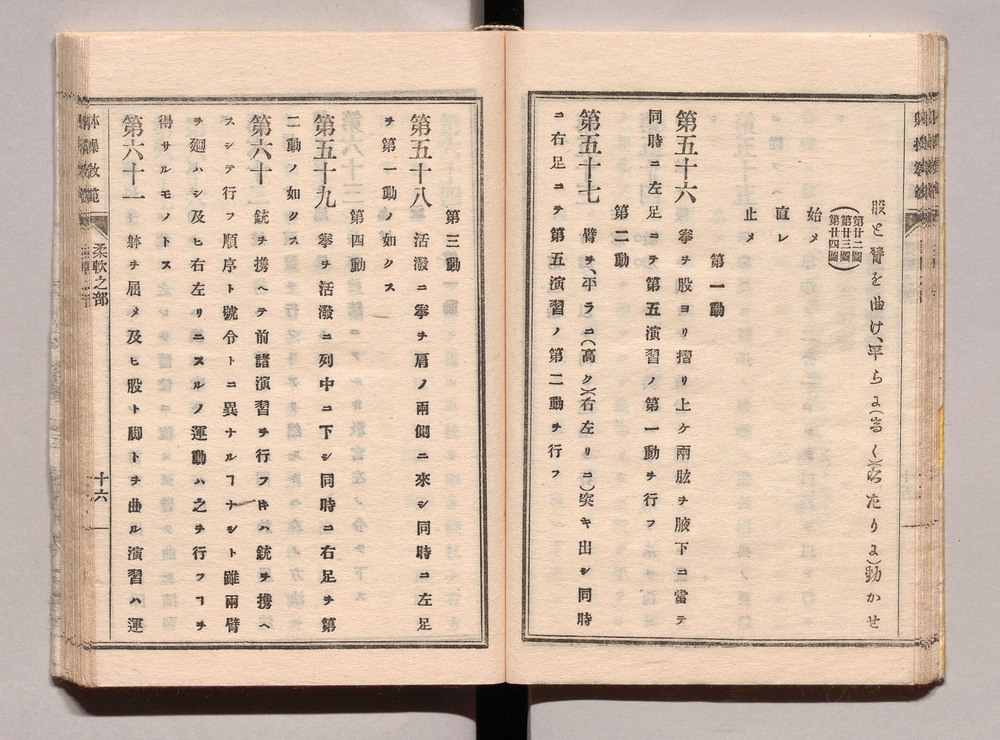 股と臂を曲け、平らよ(高く)(右左りよ)動かせ
(第廿二圖
第廿三圖
第廿四圖)
始メ
直レ
止メ
第一動
第五十六 拳ヲ股ヨリ摺リ上ケ兩肱ヲ腋下ニ當テ
同時ニ左足ニテ第五演習ノ第一動ヲ行フ
第二動
第五十七 臂ヲ、平ラニ(高ク)(右左リニ)突キ出シ同時
ニ右足ニテ第五演習ノ第二動ヲ行フ
第三動
第五十八 活潑ニ拳ヲ肩ノ兩側ニ來シ同時ニ左足
ヲ第一動ノ如クス
第四動
第五十九 拳ヲ活潑ニ列中ニ下シ同時ニ右足ヲ第
二動ノ如クス
第六十 銃ヲ携ヘテ前諸演習ヲ行フキハ銃ヲ携ヘ
スシテ行フ順序ト號令トニ異ナルヿナシト雖兩臂
ヲ廻ハシ及ヒ右左リニスルノ運動ハ之ヲ行フヿヲ
得サルモノトス
第六十一 躰ヲ屈メ及ヒ股ト脚トヲ曲ル演習ハ運
体操教範
柔軟之部
十六